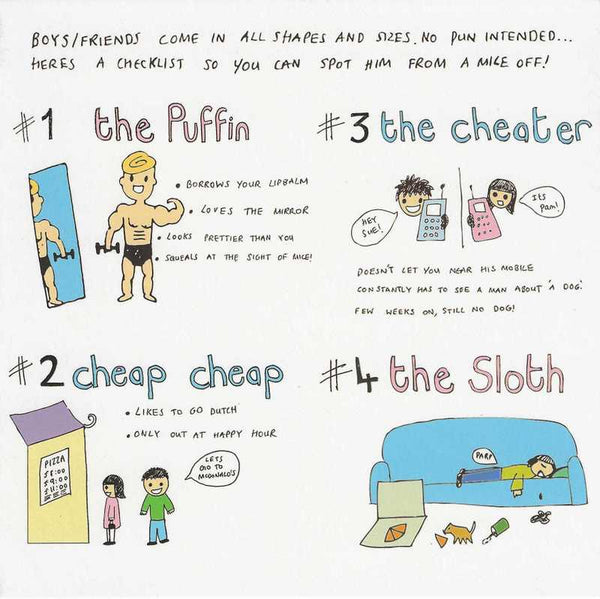 BOYS/FRIENDS COME IN ALL SHAPES AND SIZES. NO PUN INTENDED...
HERES A CHECKLIST SO YOU CAN SPOT HIM FROM A MILE OFF!
#1 the Puffin
• BORROWS YOUR LIPBALM
• LOVES THE MIRROR
• LOOKS PRETTIER THAN YOU
• SQUEALS AT THE SIGHT OF MICE!
#3 the cheater
HEY
SUE!
Its
Pam!
DOESN'T LET YOU NEAR HIS MOBILE
CONSTANTLY HAS TO SEE A MAN ABOUT 'A DOG'.
FEW WEEKS ON, STILL NO DOG!
#2 cheap cheap
• LIKES TO GO DUTCH
• ONLY OUT AT HAPPY HOUR
PIZZA
£8:00
£9:00
£11:00
LETS
GO TO
MCDONALD'S
#4 the Sloth
PARP